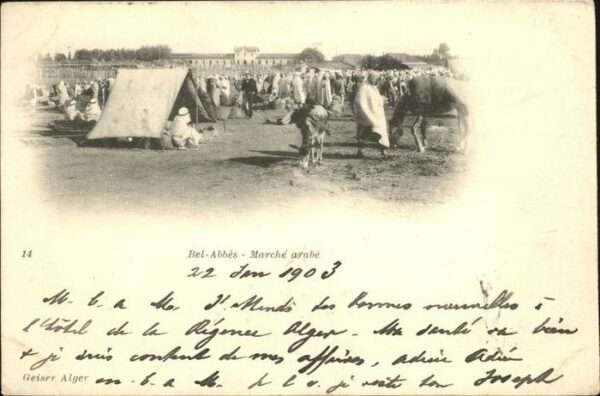 14
Bel-Abbès - Marché arabe
22 Jan 1903
M. b. a Ma. J'attends des bonnes nouvelles à
l'hôtel de la Régence Alger - Ma santé va bien
+ je suis content de mes affaires, adieu
Geiser Alger
m. b. a M. je reste ton Joseph